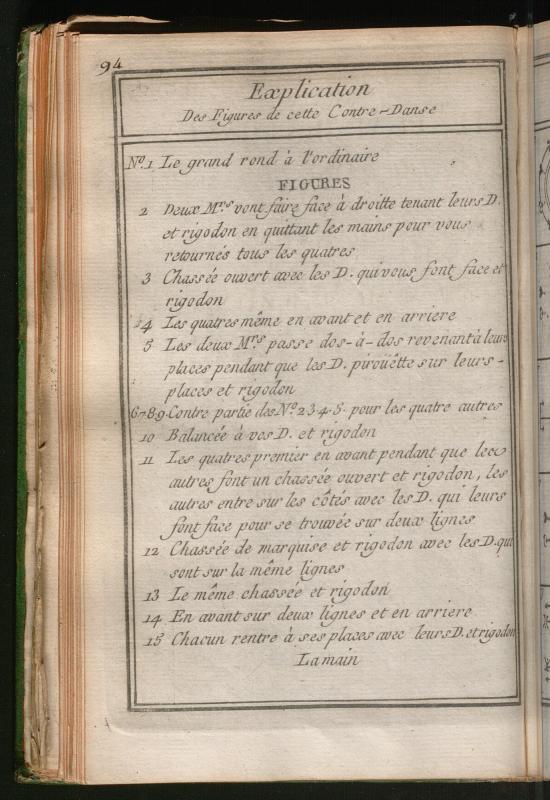 94
Explication
Des Figures de cette Contre-Danse
No. 1 Le grand rond à l'ordinaire
FIGURES
2 Deux Mrs vont faire face à droitte tenant leurs D.
et rigodon en quittant les mains pour vous
retournés tous les quatres
3 Chassée ouvert avec les D. qui vous font face et
rigodon
4 Les quatres même en avant et en arriere
5 Les deux Mrs passe dos-à-dos revenant à leurs
places pendant que les D. piroüêtte sur leurs -
places et rigodon
6·7·8·9· Contre partie des No. 2·3·4·5· pour les quatre autres
10 Balancée à vos D. et rigodon
11 Les quatres premier en avant pendant que les
autres font un chassée ouvert et rigodon, les
autres entre sur les côtés avec les D. qui leurs
font face pour se trouvée sur deux lignes
12 Chassée de marquise et rigodon avec les D. qui
sont sur la même lignes
13 Le même chassée et rigodon
14 En avant sur deux lignes et en arriere
15 Chacun rentre à ses places avec leurs D. et rigodon
La main